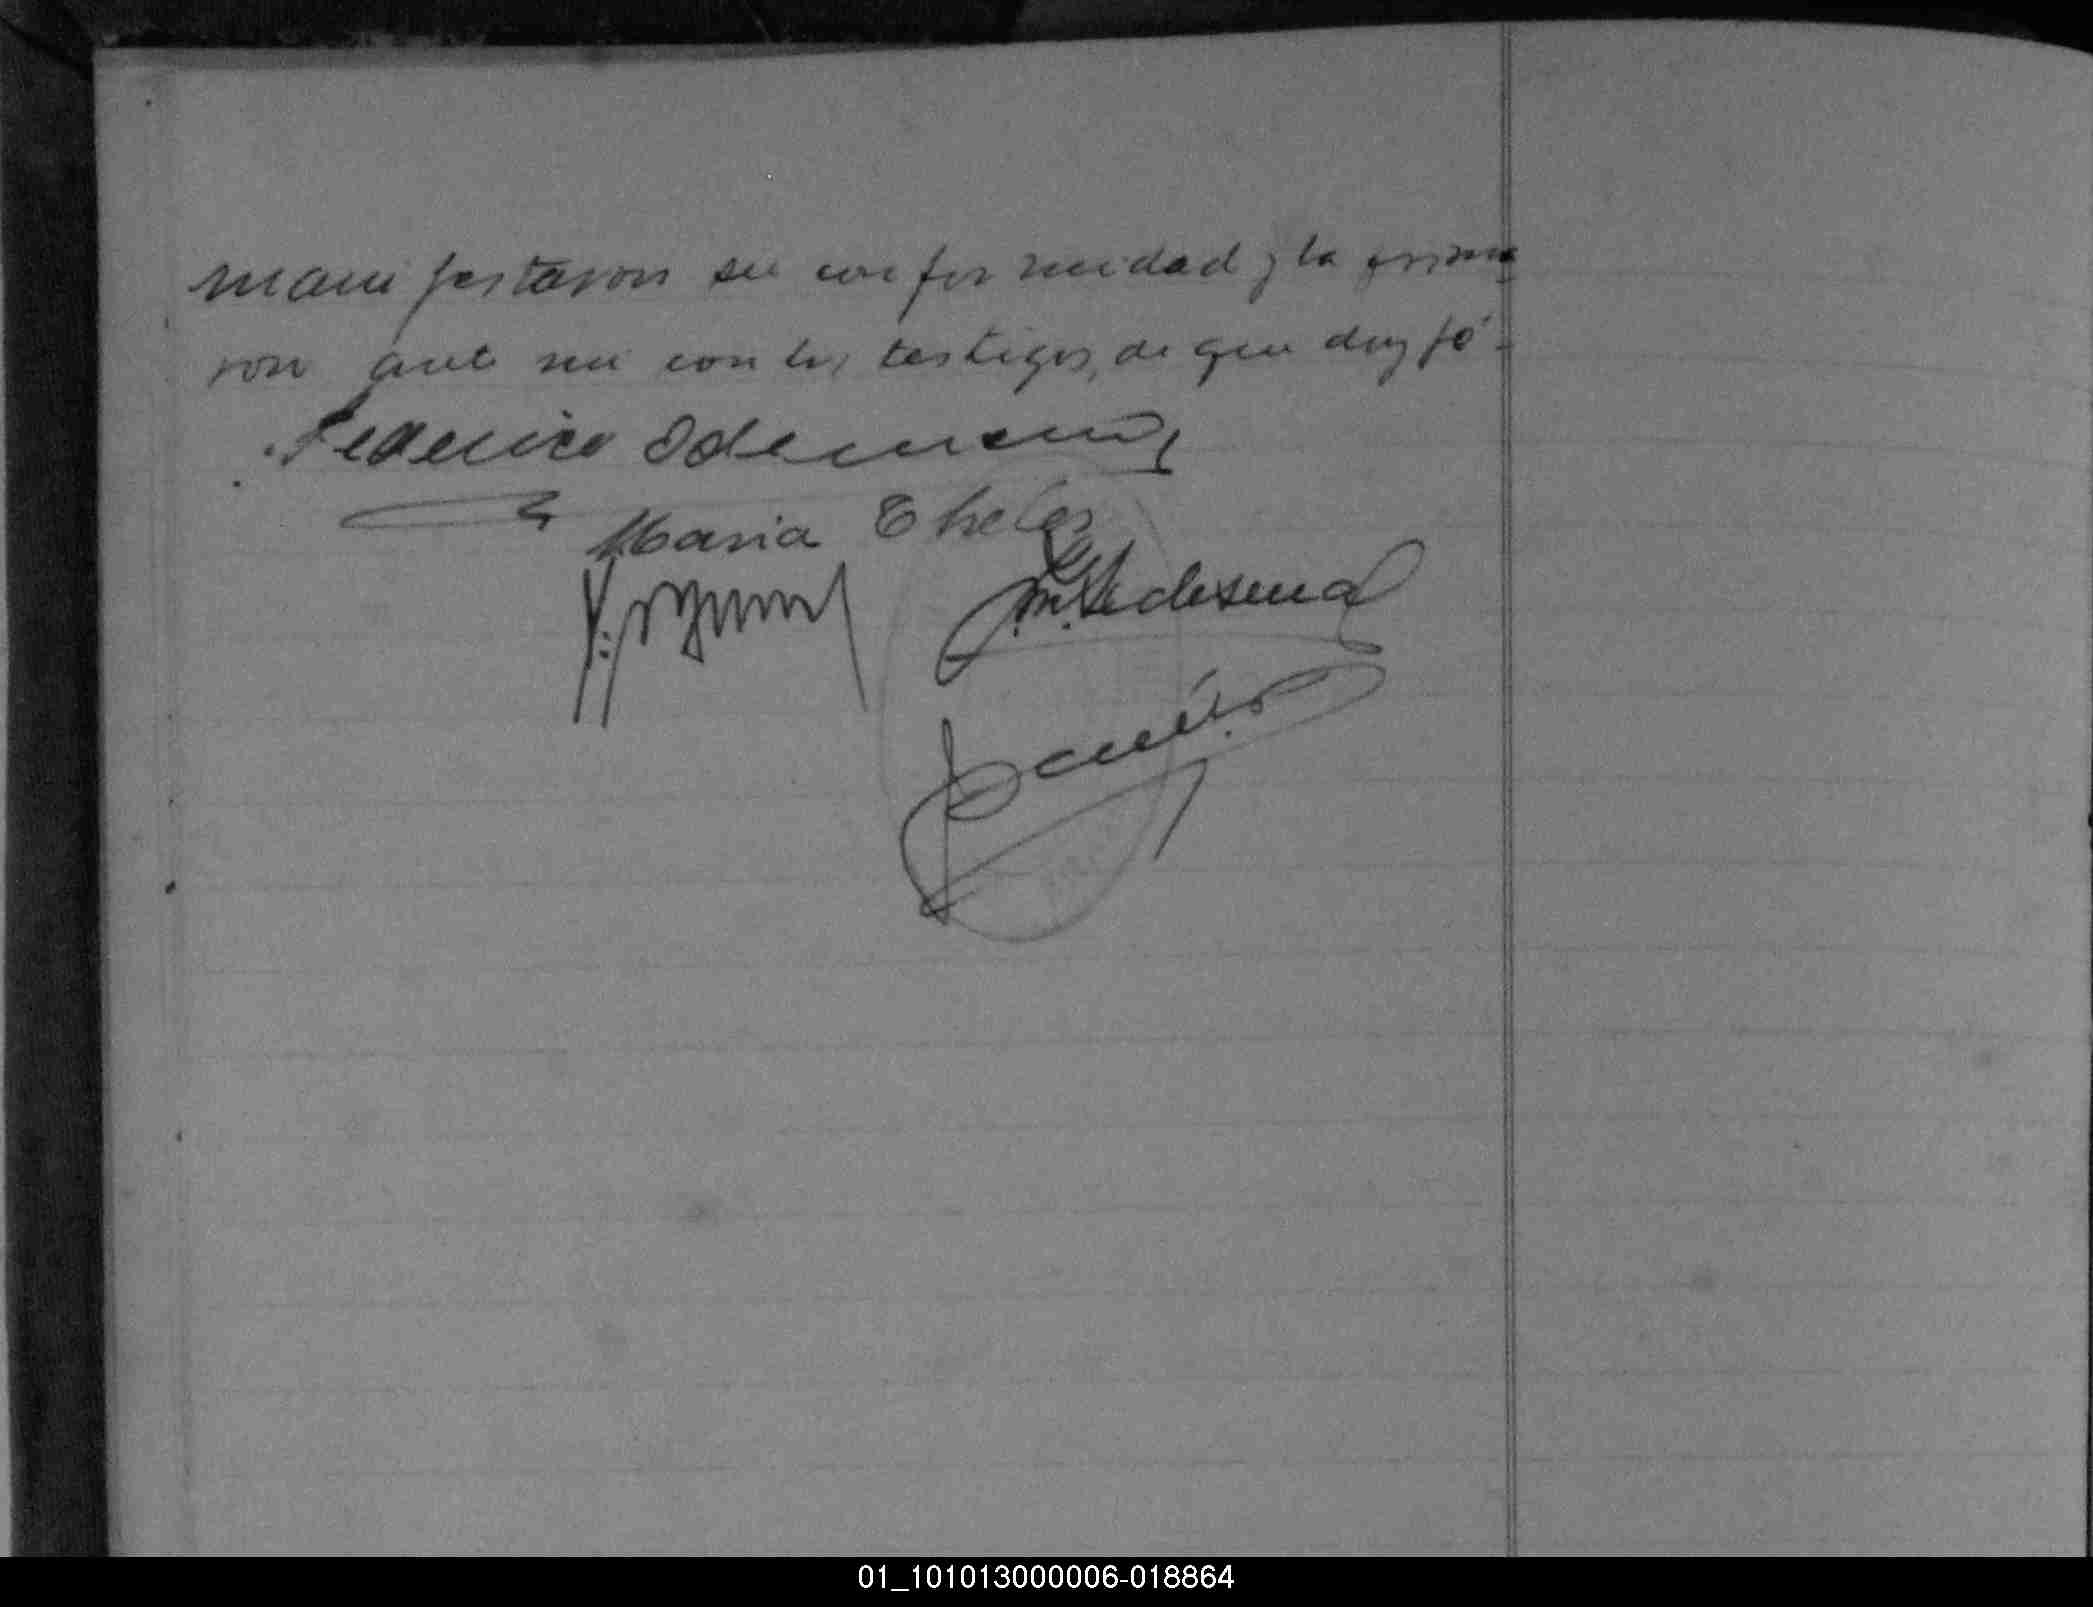 manifestaron su conformidad y la firma
ron ante mi con los testigos, de que doy fé-
Federico
Maria
Ledesma
01_101013000006-018864